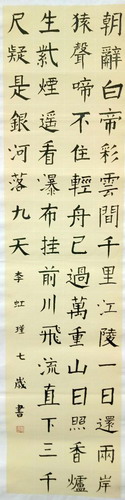 朝辭白帝彩雲間千里江陵一日還兩岸
猿聲啼不住輕舟已過萬重山日照香爐
生紫煙遥看瀑布挂前川飛流直下三千
尺疑是銀河落九天
李虹瑾七歲書